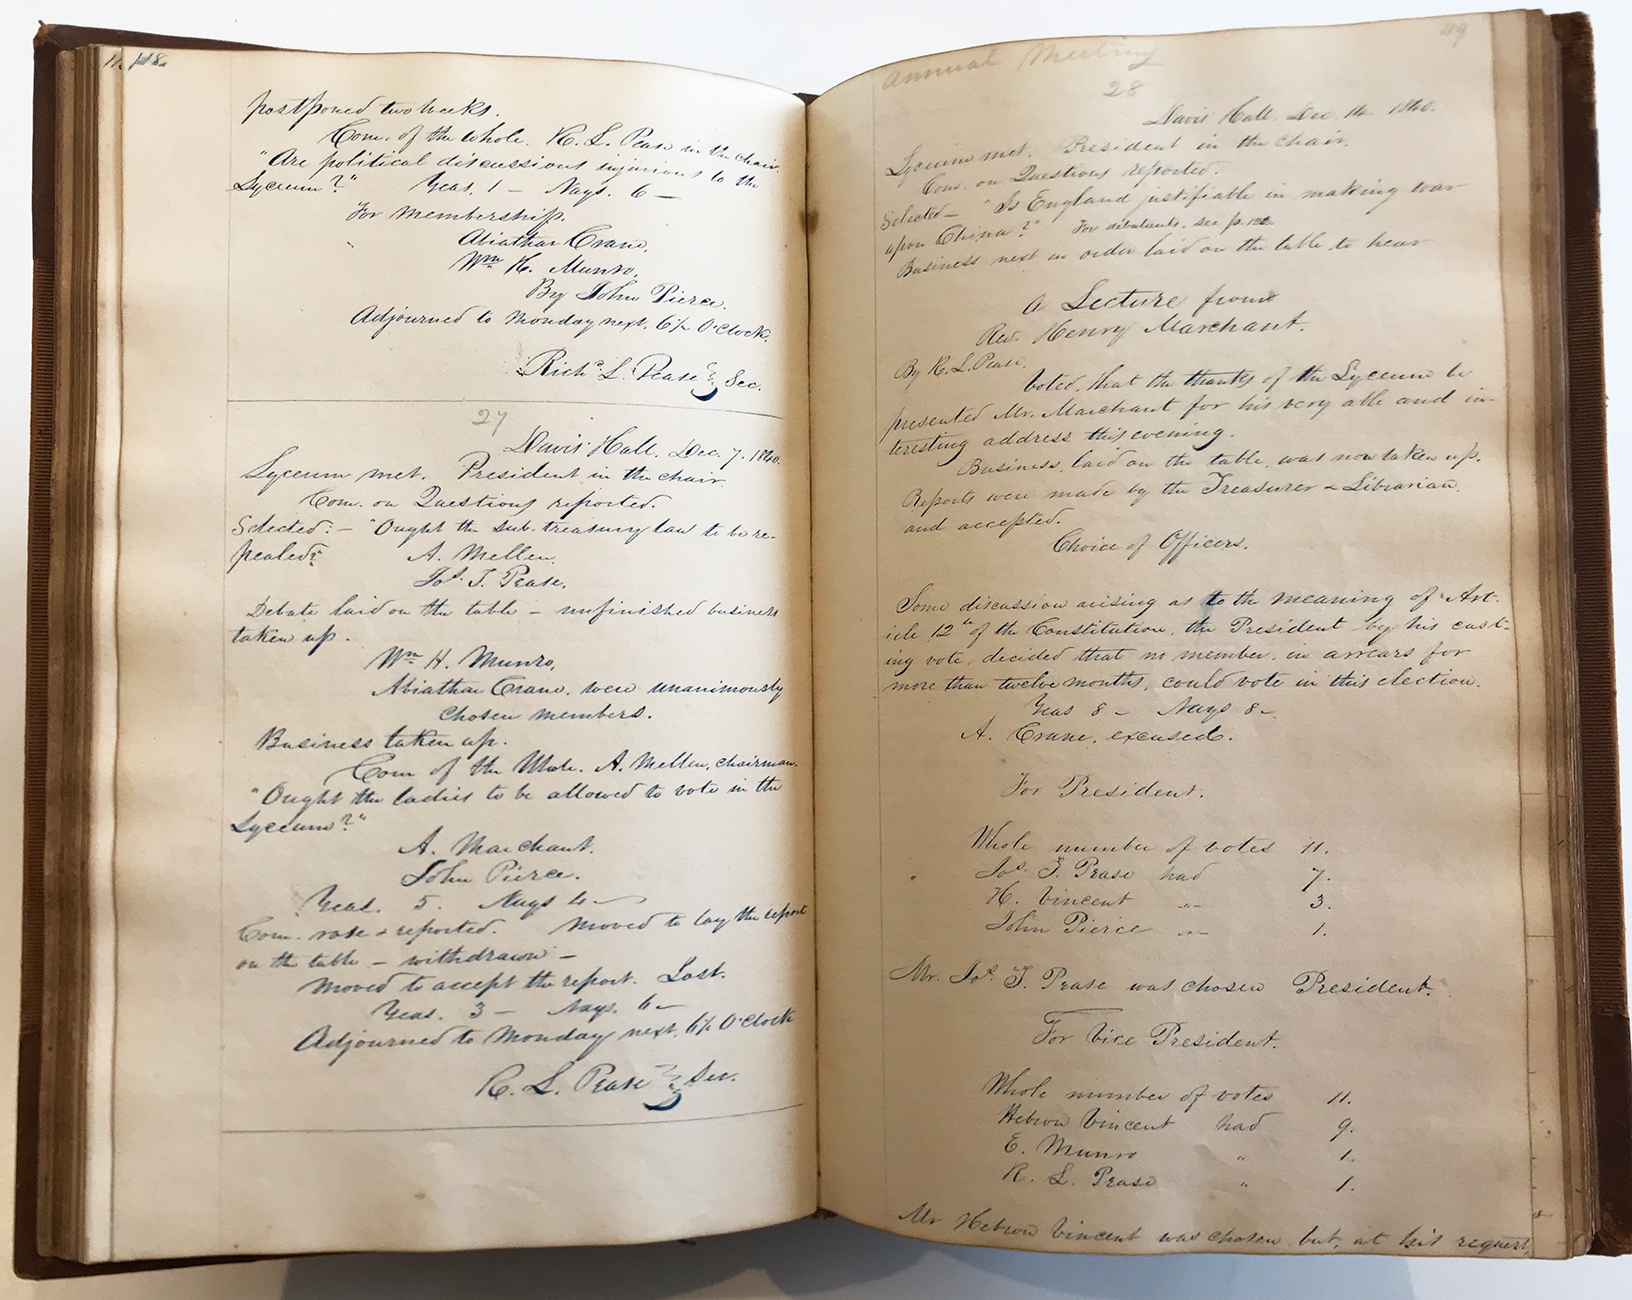 118
postponed two weeks.
Com. of the whole. R. L. Pease in the chair.
"Are political discussions injurious to the
Lyceum?" Yeas. 1 — Nays. 6 —
For membership.
Abiathar Crane.
Wm H. Munro.
By John Pierce.
Adjourned to Monday next. 6½ O'Clock.
Richd. L. Pease } Sec.
27
Davis Hall, Dec. 7. 1840.
Lyceum met. President in the chair.
Com. on Questions reported.
Selected: — "Ought the sub-treasury law to be re-
pealed?" A. Mellen.
Jos. T. Pease.
Debate laid on the table — unfinished business
taken up.
Wm H. Munro,
Abiathar Crane, were unanimously
chosen members.
Business taken up.
Com of the Whole. A. Mellen, chairman.
"Ought the ladies to be allowed to vote in the
Lyceum?"
A. Marchant.
John Pierce.
Yeas. 5. Nays 4 —
Com. rose & reported. Moved to lay the report
on the table — withdrawn —
Moved to accept the report. Lost.
Yeas. 3 — Nays. 6 —
Adjourned to Monday next. 6½ O'Clock
R. L. Pease } Sec.
119
Annual Meeting
28
Davis Hall, Dec. 14. 1840.
Lyceum met. President in the chair.
Com. on Questions reported.
Selected — "Is England justifiable in making war
upon China?" For debatants, see p. 122
Business next in order laid on the table to hear
a Lecture from
Rev. Henry Marchant.
By R. L. Pease.
Voted, that the thanks of the Lyceum be
presented Mr. Marchant for his very able and in-
teresting address this evening.
Business, laid on the table, was now taken up.
Reports were made by the Treasurer & Librarian,
and accepted.
Choice of Officers.
Some discussion arising as to the meaning of Art-
icle 12th of the Constitution, the President by his cast-
ing vote, decided that no member, in arrears for
more than twelve months, could vote in this election.
Yeas 8 — Nays 8 —
A. Crane, excused.
For President.
Whole number of votes 11.
Jos. T. Pease had 7.
H. Vincent " 3.
John Pierce " 1.
Mr. Jos. T. Pease was chosen President.
For Vice President.
Whole number of votes 11.
Hebron Vincent had 9.
E. Munro " 1.
R. L. Pease " 1.
Mr Hebron Vincent was chosen, but, at his request